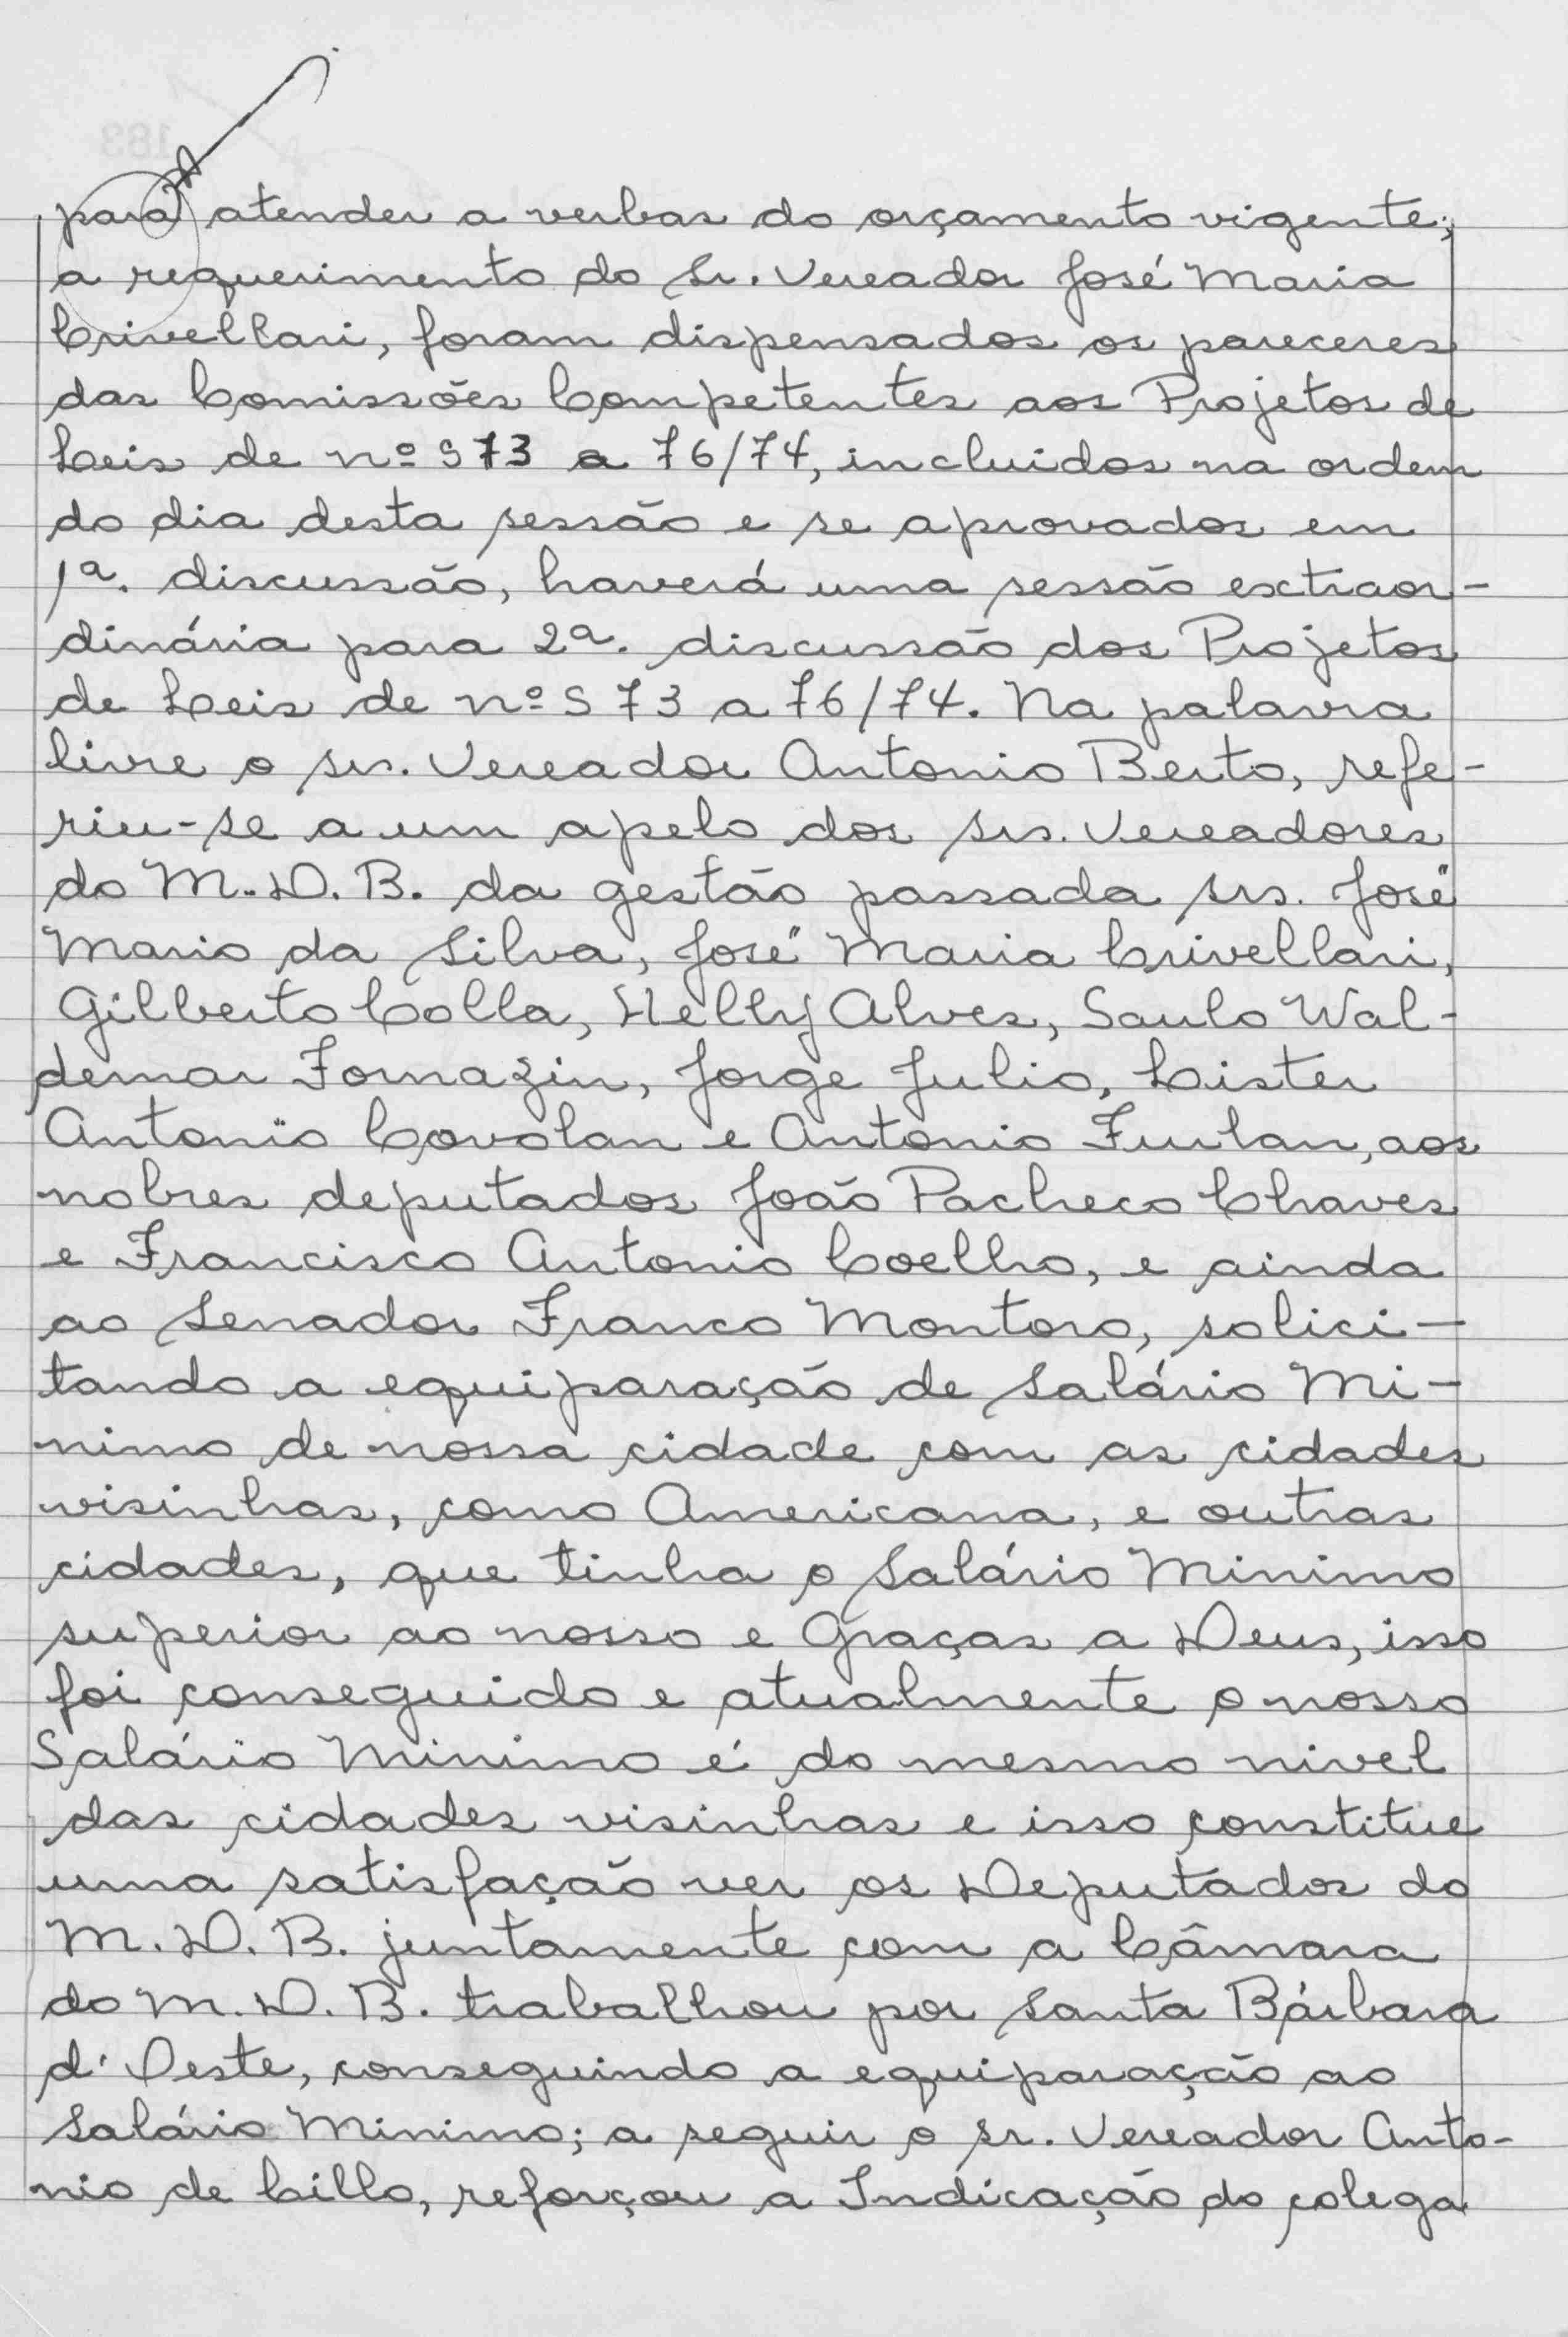 para atender a verbas do orçamento vigente;
a requerimento do Sr. Vereador José Maria
Crivellari, foram dispensados os pareceres
das Comissões Competentes aos Projetos de
Leis de nºs 73 a 76/74, incluidos na ordem
do dia desta sessão e se aprovados em
1ª. discussão, haverá uma sessão extraor-
dinária para 2ª. discussão dos Projetos
de Leis de nºs 73 a 76/74. Na palavra
livre o sr. Vereador Antonio Berto, refe-
riu-se a um apelo dos srs. Vereadores
do M.D.B. da gestão passada srs. José
Mario da Silva, José Maria Crivellari,
Gilberto Colla, Helly Alves, Saulo Wal-
demar Fornazin, Jorge Julio, Lister
Antonio Covolan e Antonio Furlan, aos
nobres deputados João Pacheco Chaves
e Francisco Antonio Coelho, e ainda
ao Senador Franco Montoro, solici-
tando a equiparação de Salário Mi-
nimo de nossa cidade com as cidades
visinhas, como Americana, e outras
cidades, que tinha o Salário Minimo
superior ao nosso e Graças a Deus, isso
foi conseguido e atualmente o nosso
Salário Minimo é do mesmo nivel
das cidades visinhas e isso constitue
uma satisfação ver os Deputados do
M.D.B. juntamente com a Câmara
do M.D.B. trabalhou por Santa Bárbara
d'Oeste, conseguindo a equiparação ao
Salário Minimo; a seguir o sr. Vereador Anto-
nio de Cillo, reforçou a Indicação do colega